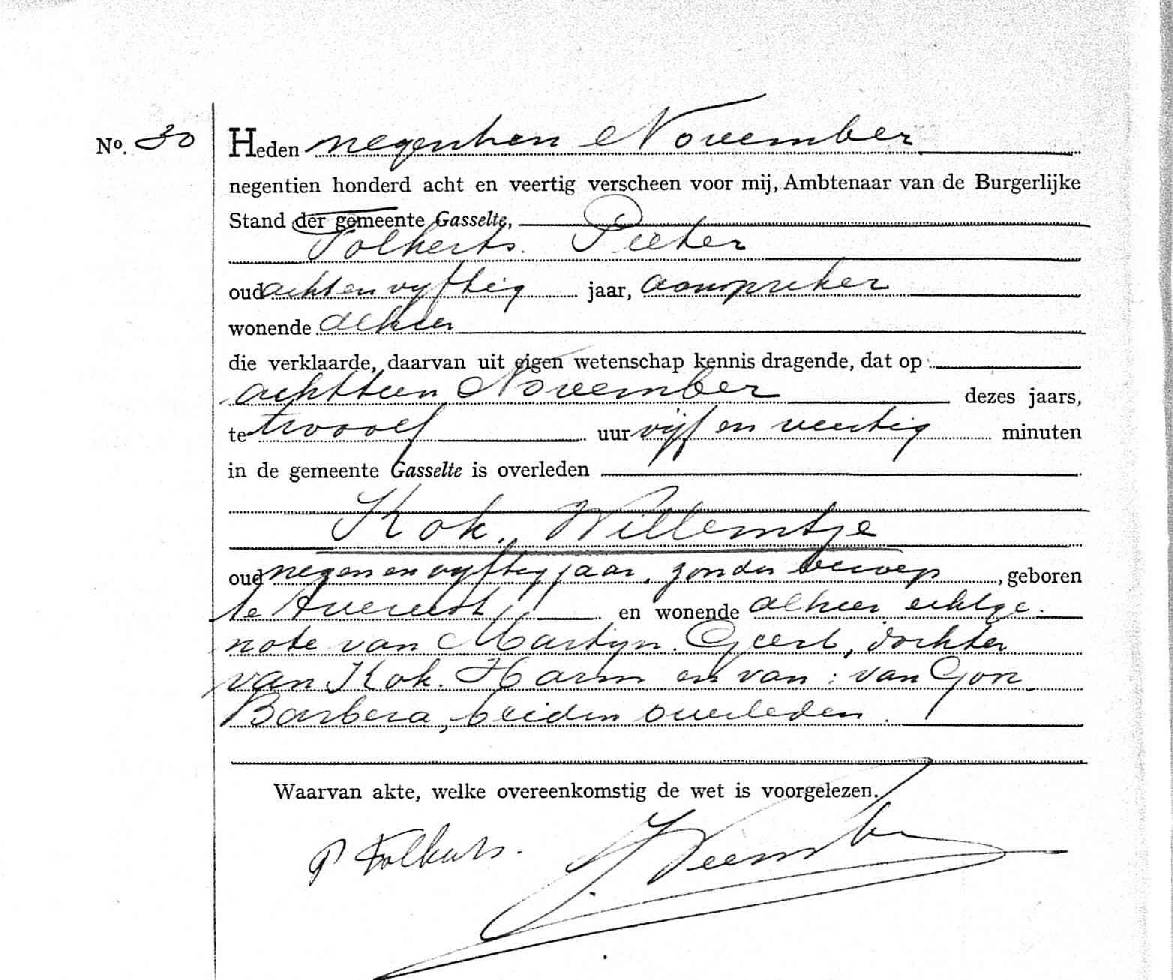 No. 30
Heden negentien November
negentien honderd acht en veertig verscheen voor mij, Ambtenaar van de Burgerlijke
Stand der gemeente Gasselte,
Folkerts. Pieter
oud acht en vyftig jaar, aanspreker
wonende alhier
die verklaarde, daarvan uit eigen wetenschap kennis dragende, dat op
achttien November dezes jaars,
te twaalf uur vijf en veertig minuten
in de gemeente Gasselte is overleden
Kok. Willemtje
oud negen en vyftig jaar, zonder beroep, geboren
te Avereest en wonende alhier echtge-
note van Martyn. Geert, dochter
van Kok. Harm en van: van Gon
Barbera, beiden overleden.
Waarvan akte, welke overeenkomstig de wet is voorgelezen.
P Folkerts.